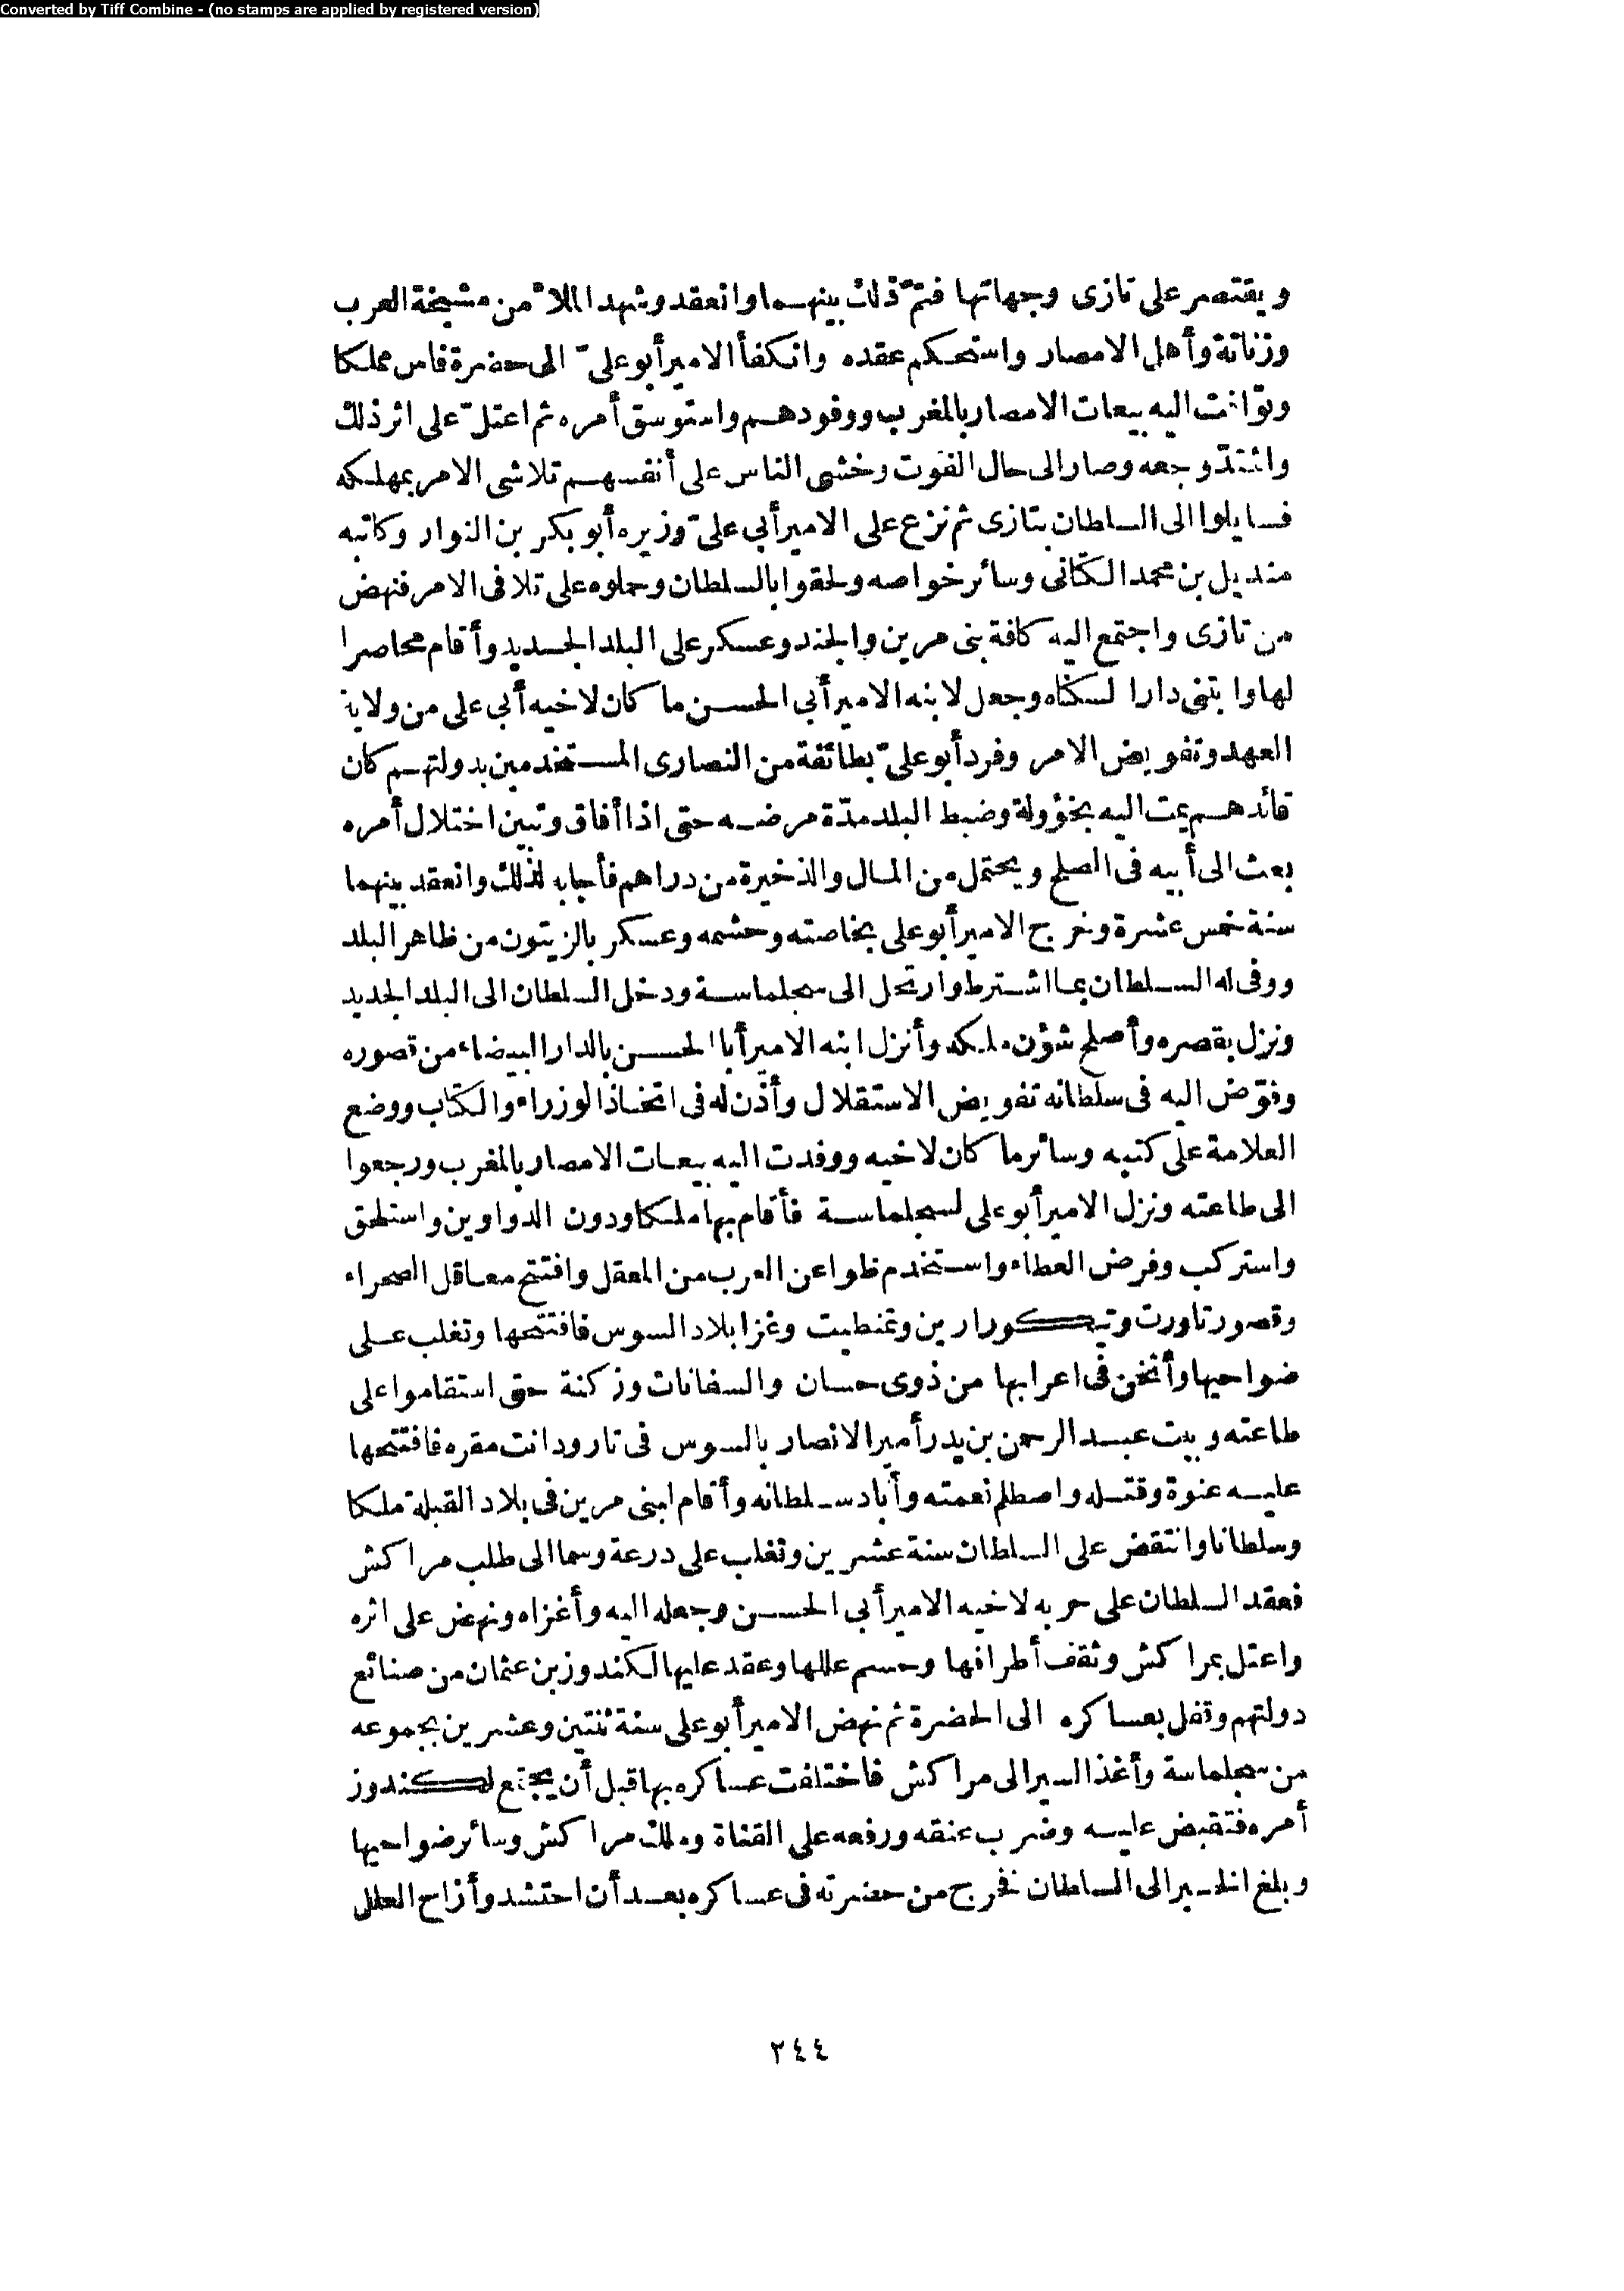 Converted by Tiff Combine - (no stamps are applied by registered version)
ويقتصر على تازى وجهاتها فتمّ ذلك بينهما وانعقد وشهد الملأ من مشيخة العرب
وزناتة وأهل الامصار واستحكم عقده وانكفأ الامير أبو علىّ الى حضرة فاس مملكا
وتوافت اليه بيعات الامصار بالمغرب ووفودهم واستوسق أمره ثم اعتلّ على اثر ذلك
واشتدّ وجعه وصار الى حال الفوت وخشى الناس على أنفسهم تلاشى الامر بمهلكه
فسايلوا الى السلطان بتازى ثم نزع على الامير أبي علىّ وزيره أبو بكر بن النوار وكاتبه
منديل بن محمد الكتانى وسائر خواصه ولحقوا بالسلطان وحملوه على تلافى الامر فنهض
من تازى واجتمع اليه كافة بنى مرين والجند وعسكر على البلد الجديد وأقام محاصرا
لها وابتنى دارا لسكناه وجعل لابنه الامير أبي الحسن ما كان لاخيه أبي على من ولاية
العهد وتفويض الامر وفرد أبو علىّ بطائفة من النصارى المستخدمين بدولتهم كان
قائدهم يمت اليه بخؤولة وضبط البلد مدّة مرضه حتى اذا أفاق وتبين اختلال أمره
بعث الى أبيه فى الصلح ويحتمل من المال والذخيرة من دراهم فأجابه لذلك وانعقد بينهما
سنة خمس عشرة وخرج الامير أبو على بخاصته وحشمه وعسكر بالزيتون من ظاهر البلد
ووفى له السلطان بما اشترط وارتحل الى سجلماسة ودخل السلطان الى البلد الجديد
ونزل بقصره وأصلح شؤن ملكه وأنزل ابنه الامير أبا الحسن بالدار البيضاء من قصوره
وفوّض اليه فى سلطانه تفويض الاستقلال وأذن له فى اتخاذ الوزراء والكتاب ووضع
العلامة على كتبه وسائر ما كان لاخيه ووفدت اليه بيعات الامصار بالمغرب ورجعوا
الى طاعته ونزل الامير أبو على لسجلماسة فأقام بها ملكا ودون الدواوين واستلحق
واستركب وفرض العطاء واستخدم ظواعن العرب من المعقل وافتتح معاقل الصحراء
وقصور تاورت وتيكورارين وتمنطيت وغزا بلاد السوس فافتتحها وتغلب على
ضواحيها وأثخن فى اعرابها من ذوى حسان والسفانات وزكنة حتى استقاموا على
طاعته وبيت عبد الرحمن بن يدر أمير الانصار بالسوس فى تارودانت مقره فافتتحها
عليه عنوة وقتله واصطلم نعمته وأباد سلطانه وأقام لبنى مرين فى بلاد القبلة ملكا
وسلطانا وانتقض على السلطان سنة عشرين وتغلب على درعة وسما الى طلب مراكش
فعقد السلطان على حربه لاخيه الامير أبى الحسن وجعله اليه وأغزاه ونهض على اثره
واعتل بمراكش وثقف أطرافها وحسم عللها وعقد عليها لكندوز بن عثمان من صنائع
دولتهم وقفل بعساكره الى الحضرة ثم نهض الامير أبو على سنة ثنتين وعشرين بجموعه
من سجلماسة وأغذ السير الى مراكش فاختلفت عساكره بها قبل أن يجتمع لكندوز
أمره فتقبض عليه وضرب عنقه ورفعه على القناة وملك مراكش وسائر ضواحيها
وبلغ الخبر الى السلطان فخرج من حضرته فى عساكره بعد أن احتشد وأزاح العلل
٢٤٤